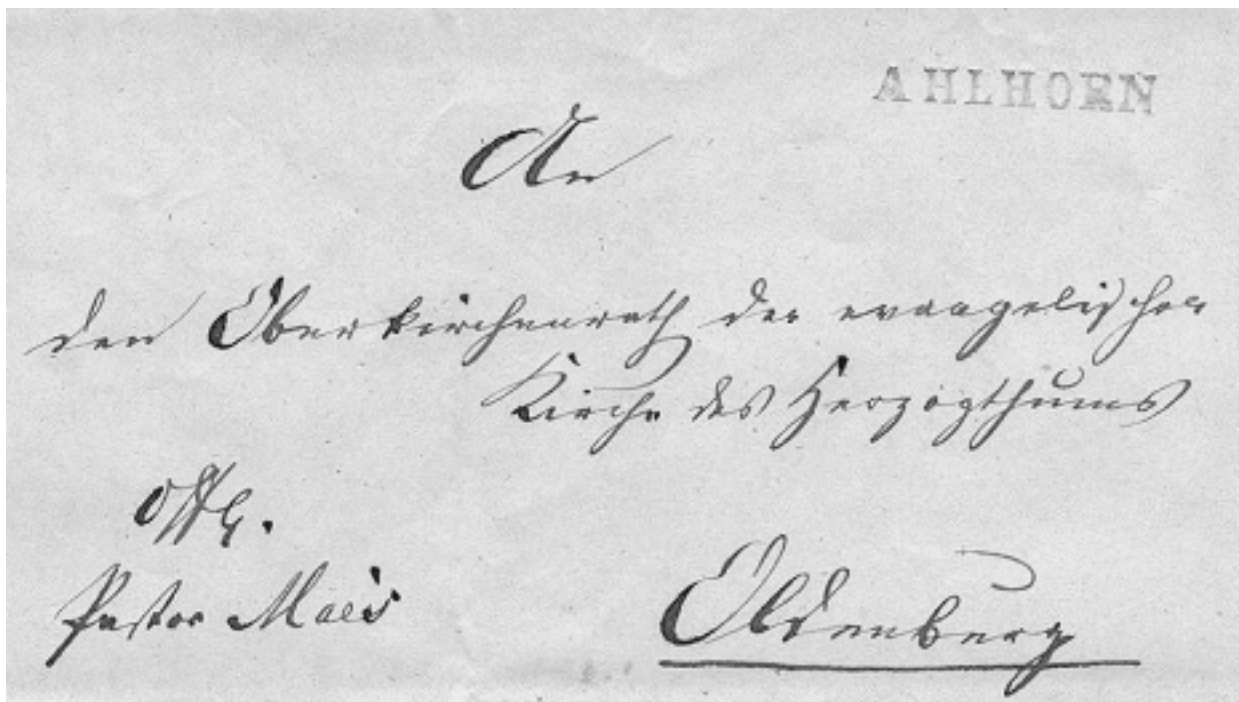 AHLHORN
An
den Oberkirchenrath der evangelischen
Kirche des Herzogthums
Pastor
Oldenburg